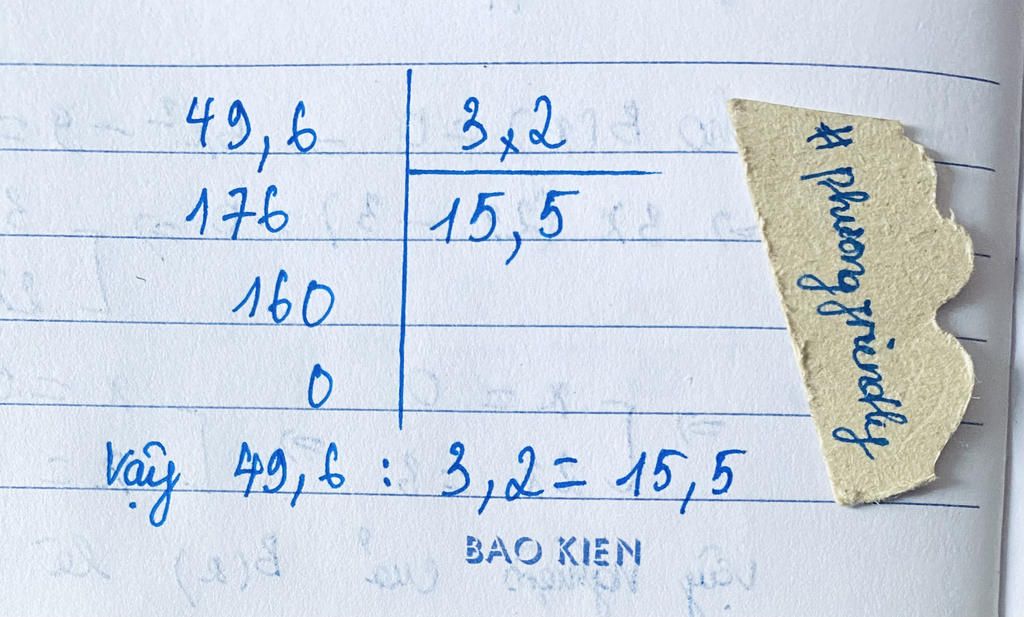 49,6 3,2
176 15,5
160
0
Vậy 49,6 : 3,2 = 15,5
BAO KIEN
#phuongfriendly